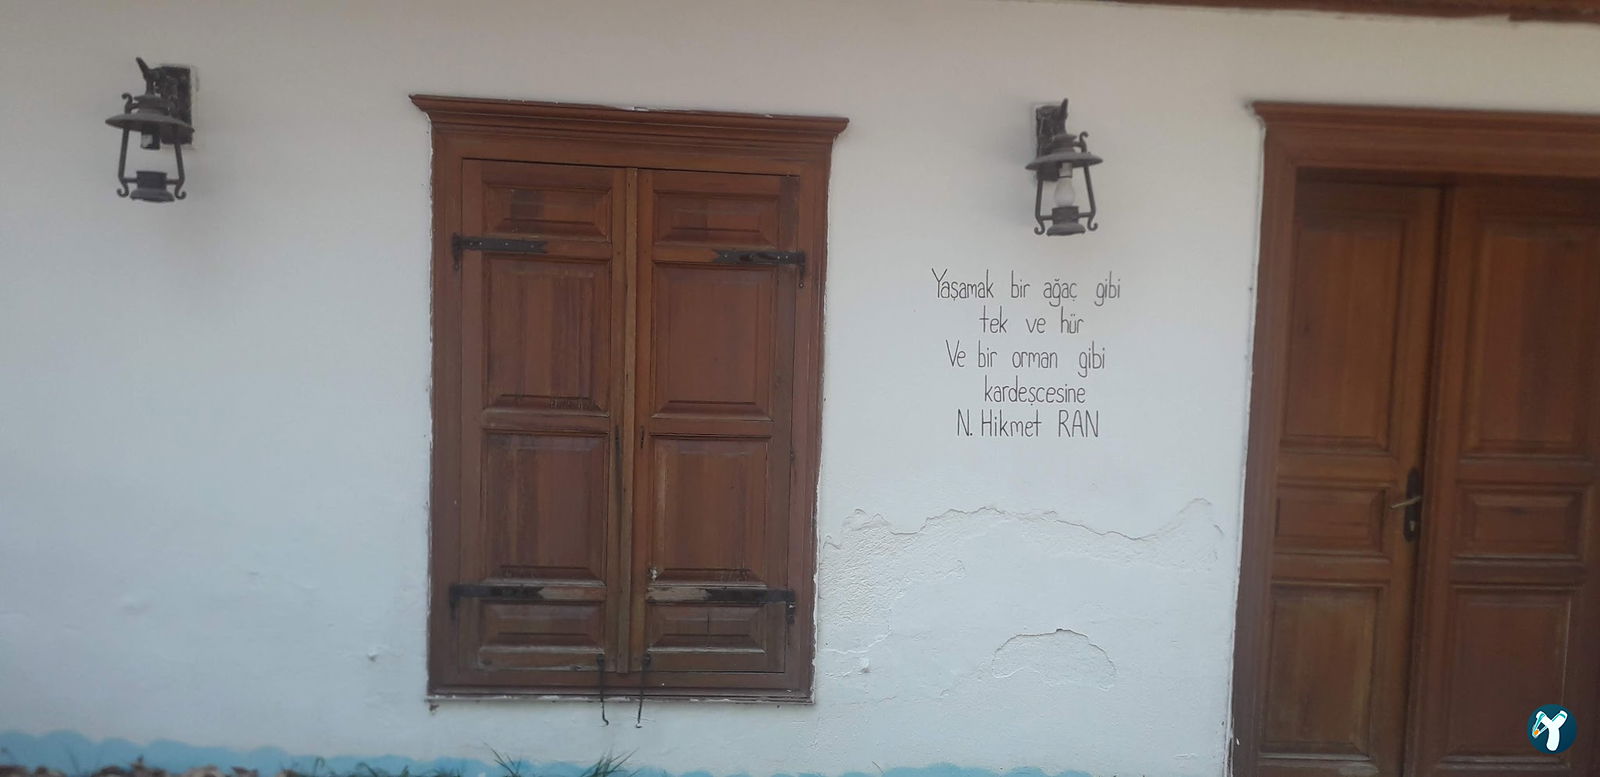 Yaşamak bir ağaç gibi
tek ve hür
Ve bir orman gibi
kardeşcesine
N. Hikmet RAN